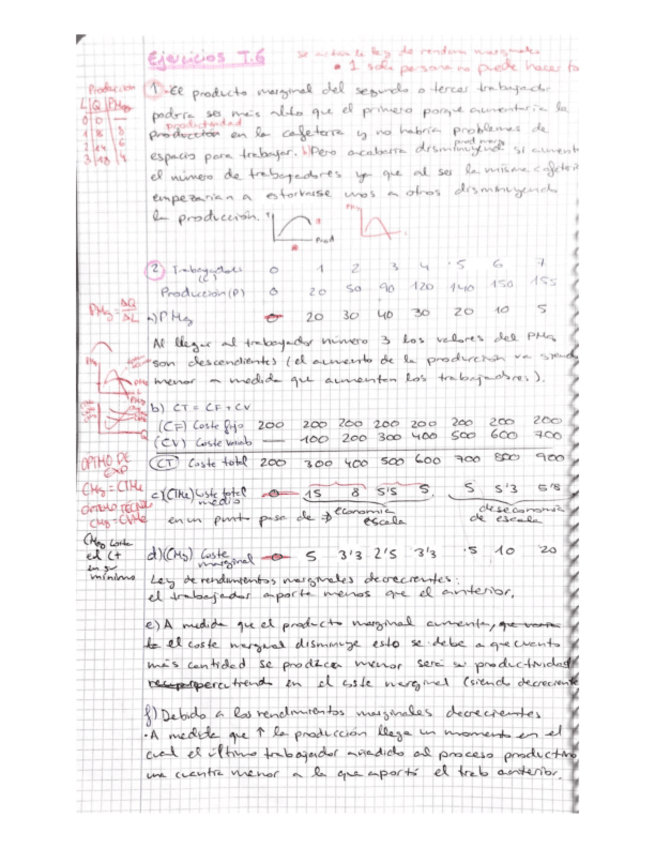 Ejercicios T.6
se
ley de rendim marginales
• 1 sola persona no puede hacer to
Producción
L Q PMg
0 0 —
1 8 8
2 14 6
3 18 4
1 • El producto marginal del segundo o tercer trabajador
podría ser más alto que el primero porque aumentaría la
productividad
producción en la cafetería y no habría problemas de
espacio para trabajar. Pero acabaría disminuyendo si aument
prod marg
el número de trabajadores ya que al ser la misma cafeter
empezarían a estorbarse unos a otros disminuyendo
la producción.
Prod
2 Trabajadores 0 1 2 3 4 5 6 7
(L)
Producción (P) 0 20 50 90 120 140 150 155
PMg = ΔQ
ΔL
a) PMg 0 20 30 40 30 20 10 5
Al llegar al trabajador número 3 los valores del PMg
son descendientes (el aumento de la producción va siend
menor a medida que aumentan los trabajadores).
b) CT = CF + CV
(CF) Coste fijo 200 200 200 200 200 200 200 200
(CV) Coste variab — 100 200 300 400 500 600 700
(CT) Coste total 200 300 400 500 600 700 800 900
OPTIMO DE
EXP
CMg = CTMe
OPTIMO TÉCNI
CMg = CVMe
CMg corta
el Ct
en su
mínimo
c) (CTMe) Coste total 0 15 8 5'5 5 5 5'3 5'8
medio
en un punto pasa de → economía
escala
deseconomía
de escala
d) (CMg) Coste 0 5 3'3 2'5 3'3 5 10 20
marginal
Ley de rendimientos marginales decrecientes:
el trabajador aporta menos que el anterior.
e) A medida que el producto marginal aumenta, que
el coste marginal disminuye esto se debe a que cuanto
más cantidad se produzca menor será su productividad
repercutiendo en el coste marginal (siendo decreciente
f) Debido a los rendimientos marginales decrecientes
• A medida que ↑ la producción llega un momento en el
cual el último trabajador añadido al proceso productivo
una cuantía menor a la que aportó el trab anterior.